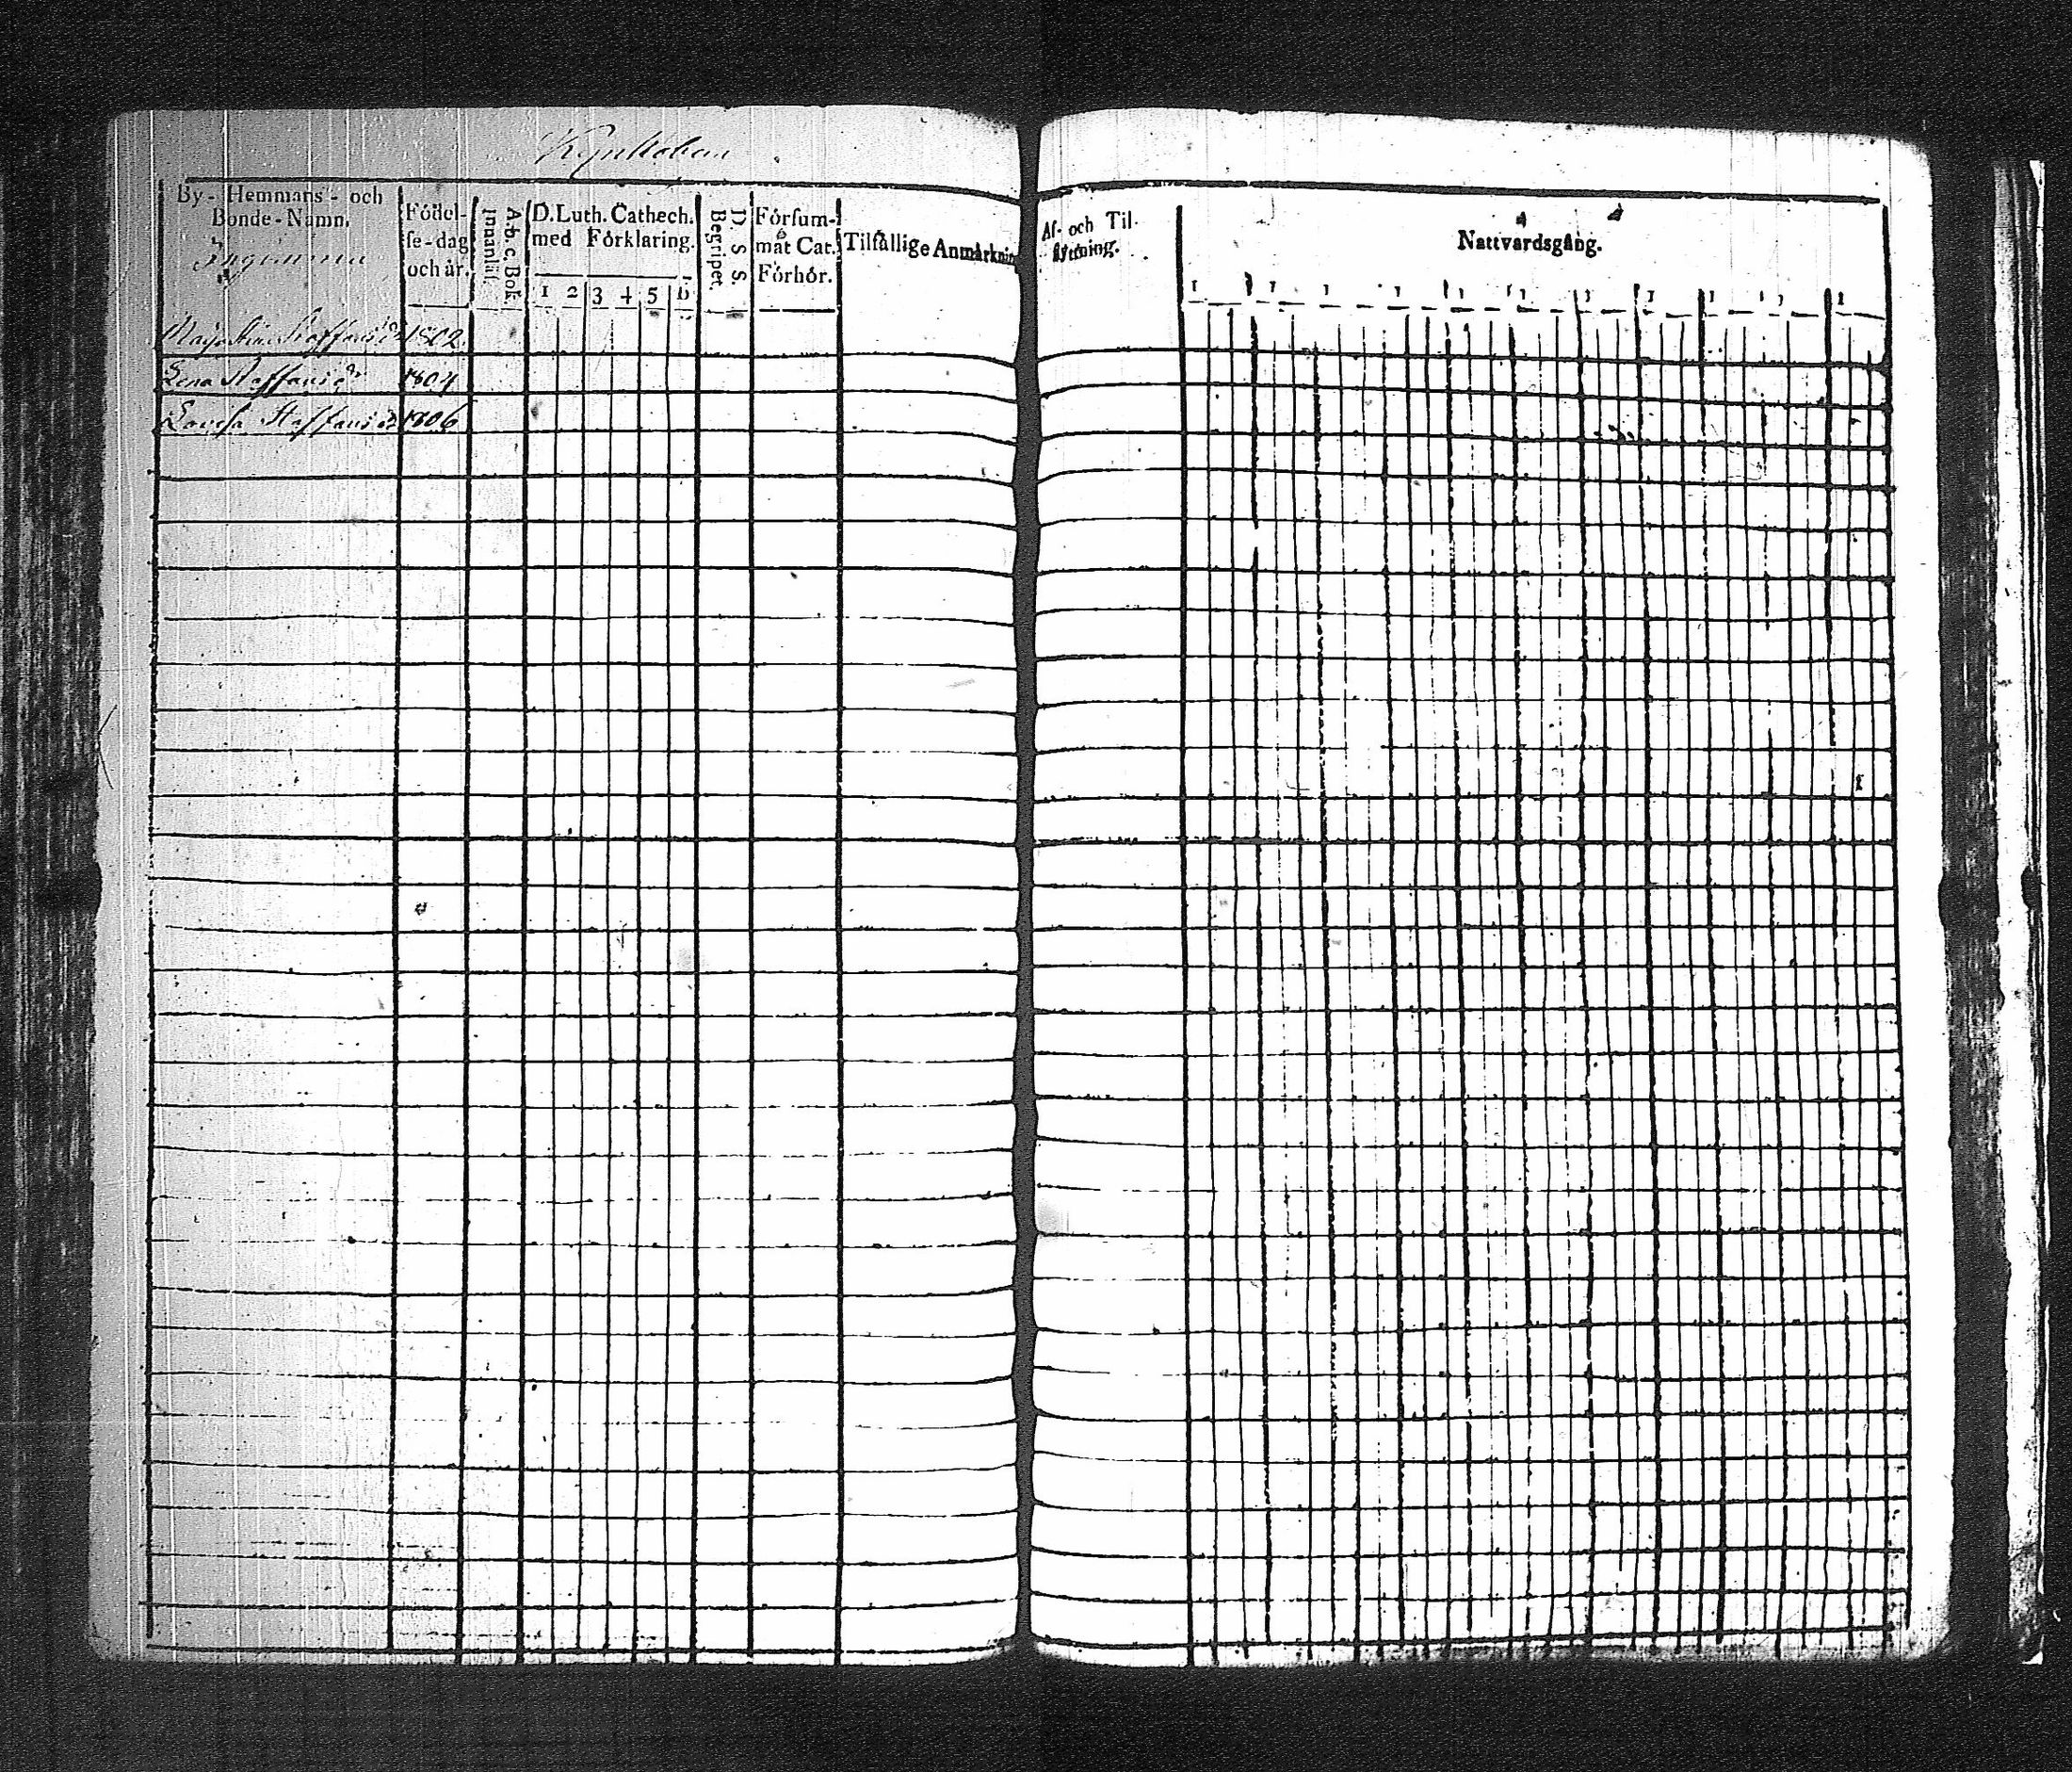 Kynkoban
By - Hemmans - och
Bonde - Namn.
Födel-
se-dag
och år.
A.b.c. Bok.
Innanläs.
D. Luth. Cathech.
med Förklaring.
1 2 3 4 5 6
D. S. S.
Begripet.
Försum-
mat Cat.
Förhör.
Tilfällige Anmärknin
Af- och Til-
flyttning.
Nattvardsgång.
Maja Stina Staffansdr 1802.
Lena Staffansdr 1804
Lovisa Staffansdr 1806